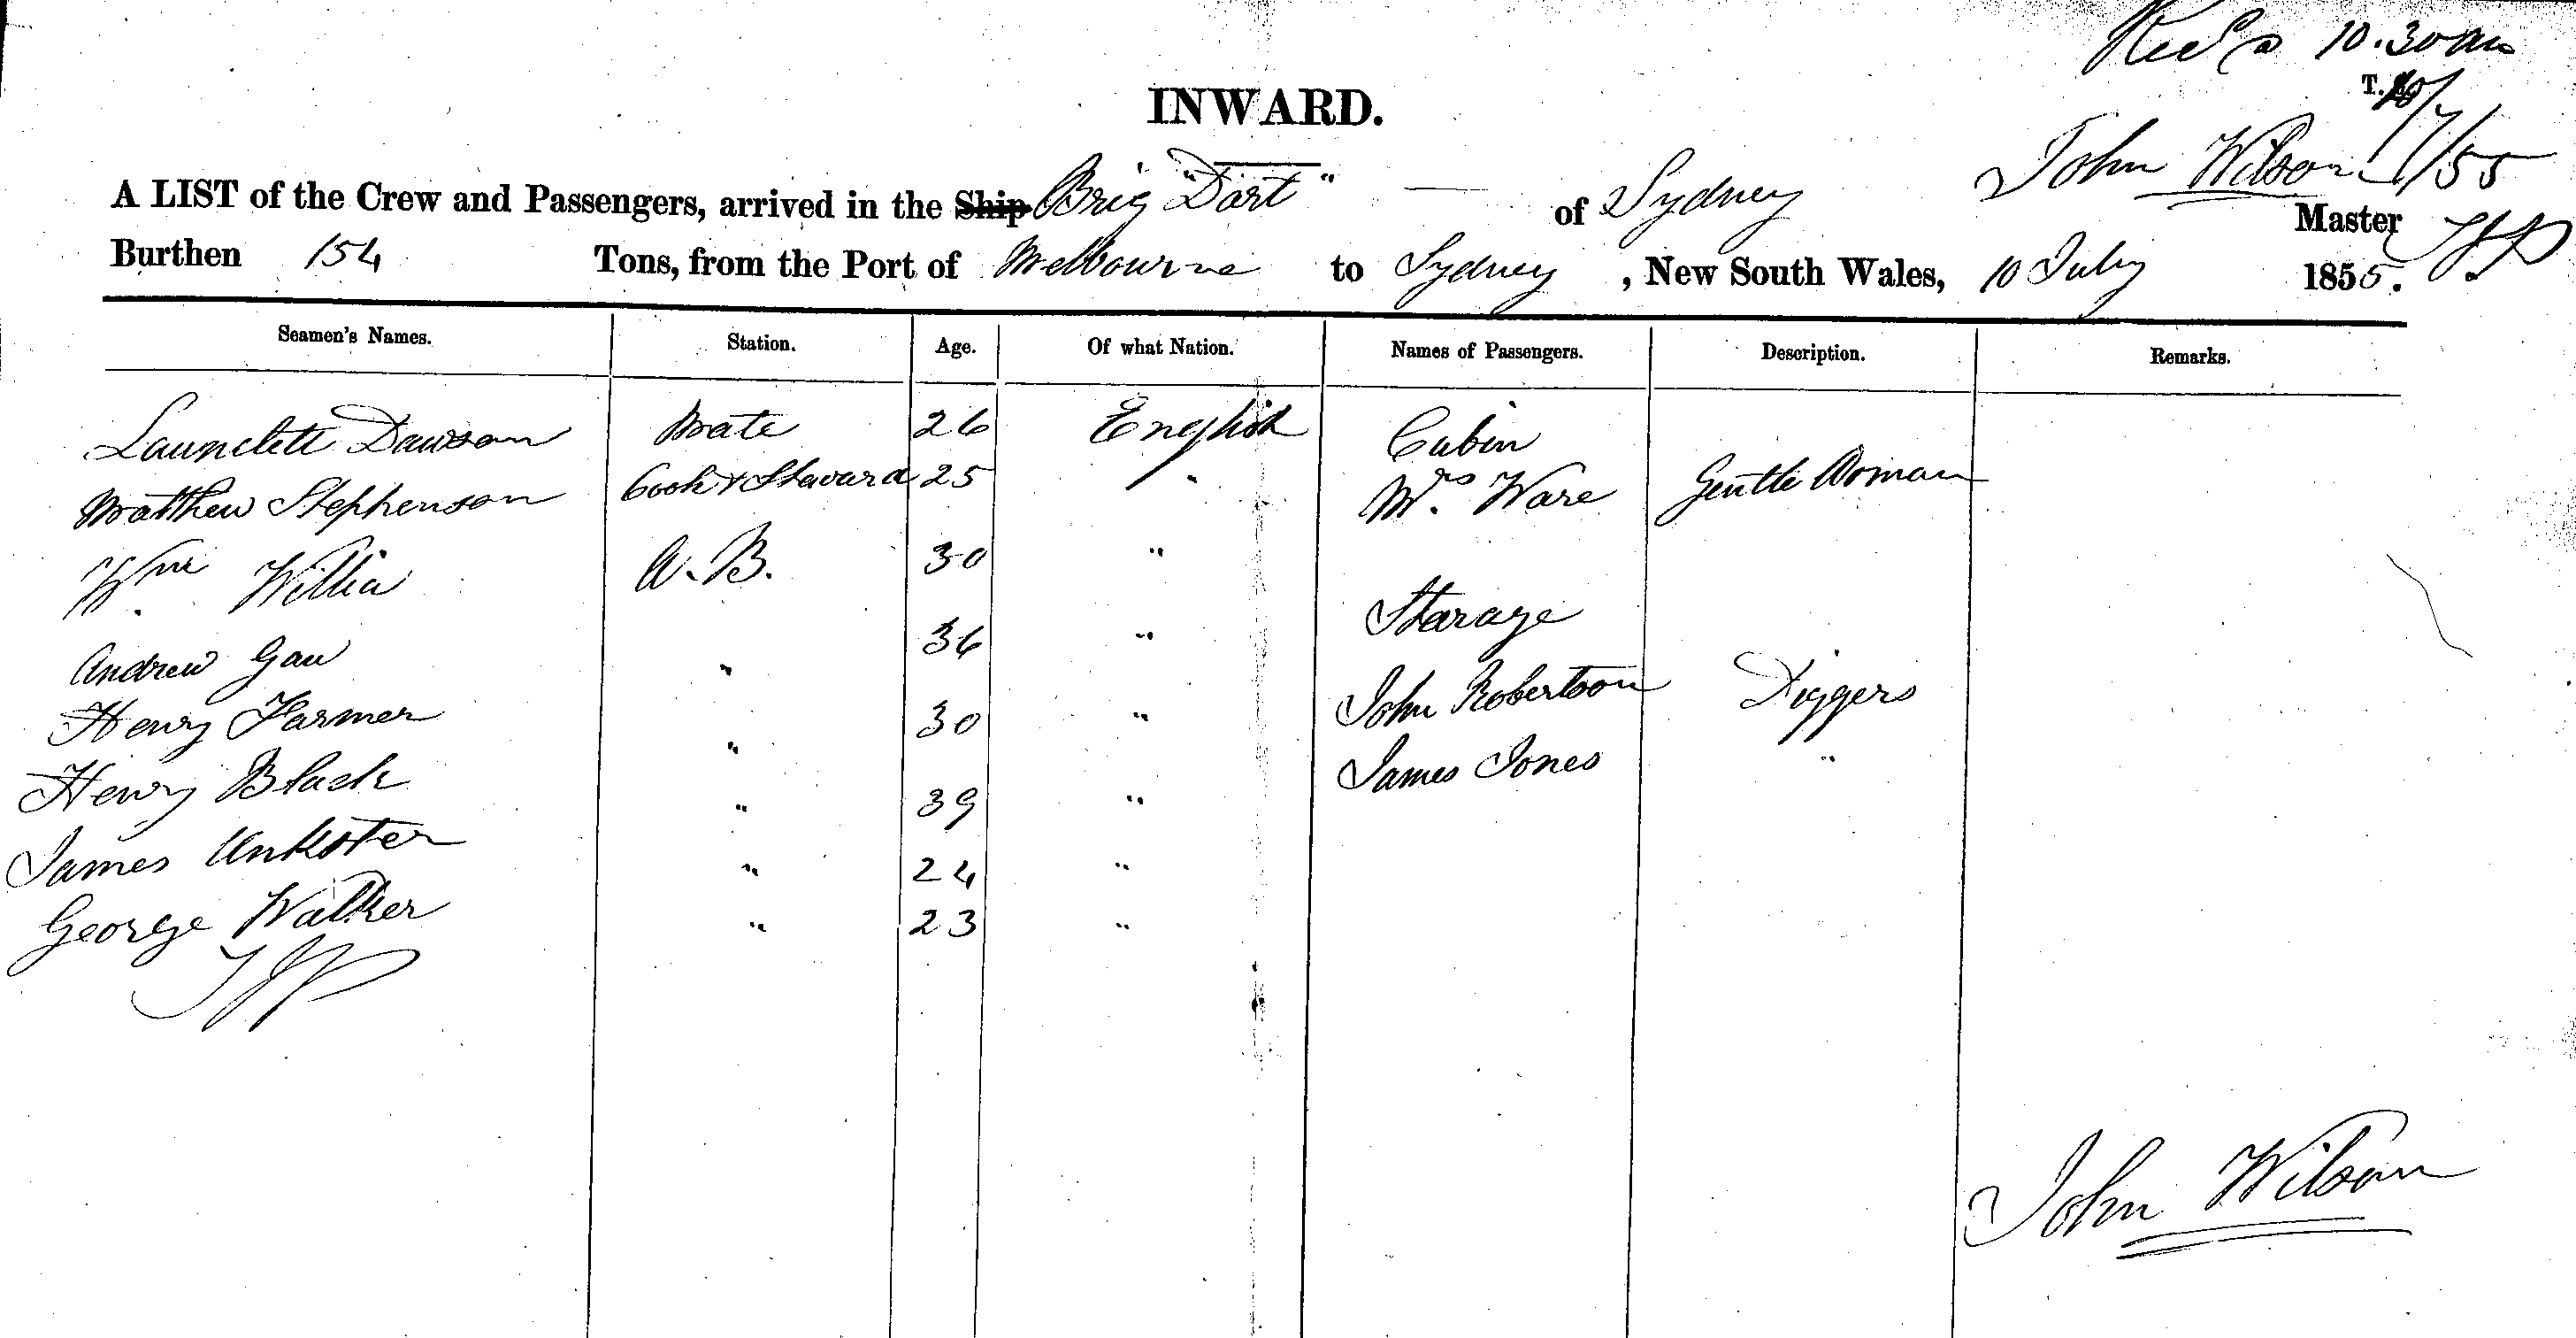 Recd @ 10.30 am
10/7/55
INWARD.
A LIST of the Crew and Passengers, arrived in the Ship Brig "Dart" of Sydney John Wilson Master
Burthen 154 Tons, from the Port of Melbourne to Sydney, New South Wales, 10 July 1855.
Seamen's Names. Station. Age. Of what Nation. Names of Passengers. Description. Remarks.
Launclett Dawson Mate 26 English Cabin
Matthew Stephenson Cook & Steward 25 " Mrs. Ware Gentle Woman
Wm. Willia A.B. 30 "
Starage
Andrew Gau " 36 "
Henry Farmer " 30 " John Robertson Diggers
Henry Black " 39 " James Jones "
James Unkster " 24 "
George Walker " 23 "
John Wilson